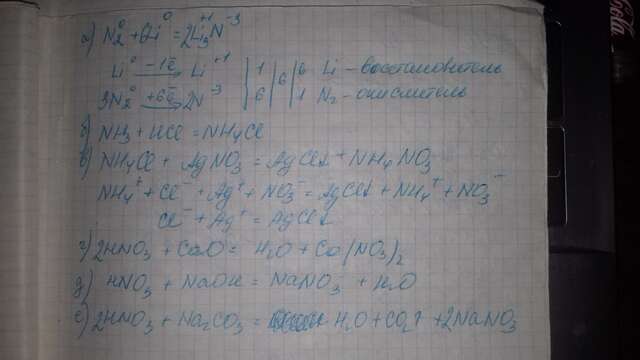 а) N₂⁰ + 6Li⁰ = 2Li₃⁺¹N⁻³
Li⁰ —1ē→ Li⁺¹ | 1 | 6 | 6 Li – восстановитель
3N₂⁰ +6ē→ 2N⁻³ | 6 | | 1 N₂ – окислитель
б) NH₃ + HCl = NH₄Cl
в) NH₄Cl + AgNO₃ = AgCl↓ + NH₄NO₃
NH₄⁺ + Cl⁻ + Ag⁺ + NO₃⁻ = AgCl↓ + NH₄⁺ + NO₃⁻
Cl⁻ + Ag⁺ = AgCl↓
г) 2HNO₃ + CaO = H₂O + Ca(NO₃)₂
д) HNO₃ + NaOH = NaNO₃ + H₂O
е) 2HNO₃ + Na₂CO₃ = H₂O + CO₂↑ + 2NaNO₃
Cola